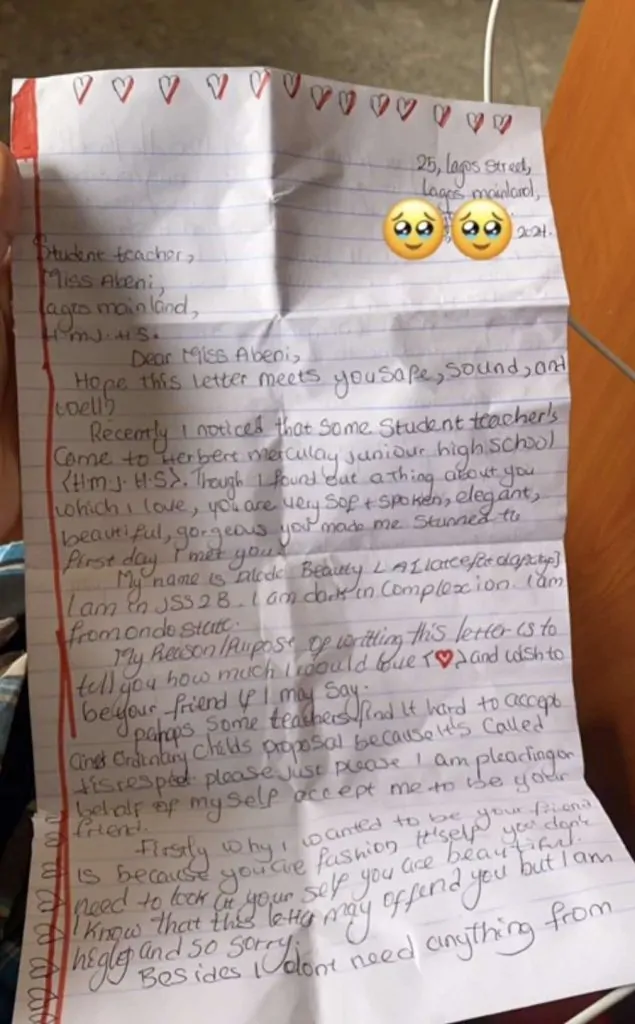 25, Lagos Street,
Lagos mainland,
2021.
Student teacher,
Miss Abeni,
Lagos mainland,
H.M.J.H.S.
Dear Miss Abeni,
Hope this letter meets you safe, sound, and
well?
Recently I noticed that some Student teacher's
Come to Herbert merculay juniour high school
{H.M.J.H.S}. Though I found out a thing about you
which I love, you are very soft spoken, elegant,
beautiful, gorgeous you made me stunned the
first day I met you.
My name is Beauty
I am in JSS2B. I am dark in Complexion. I am
from ondo state.
My Reason/Purpose of writting this letter is to
tell you how much I would love {♥} and wish to
be your friend if I may say.
pahaps some teachers find it hard to accept
Ordinary Childs proposal because it's Called
disrespect please just please I am pleading on
behalf of my self accept me to be your
friend.
Firstly why I wanted to be your friend
is because you are fashion itself you don't
need to look at your self you are beautiful.
I know that this letter may offend you but I am
and so sorry.
Besides I dont need anything from